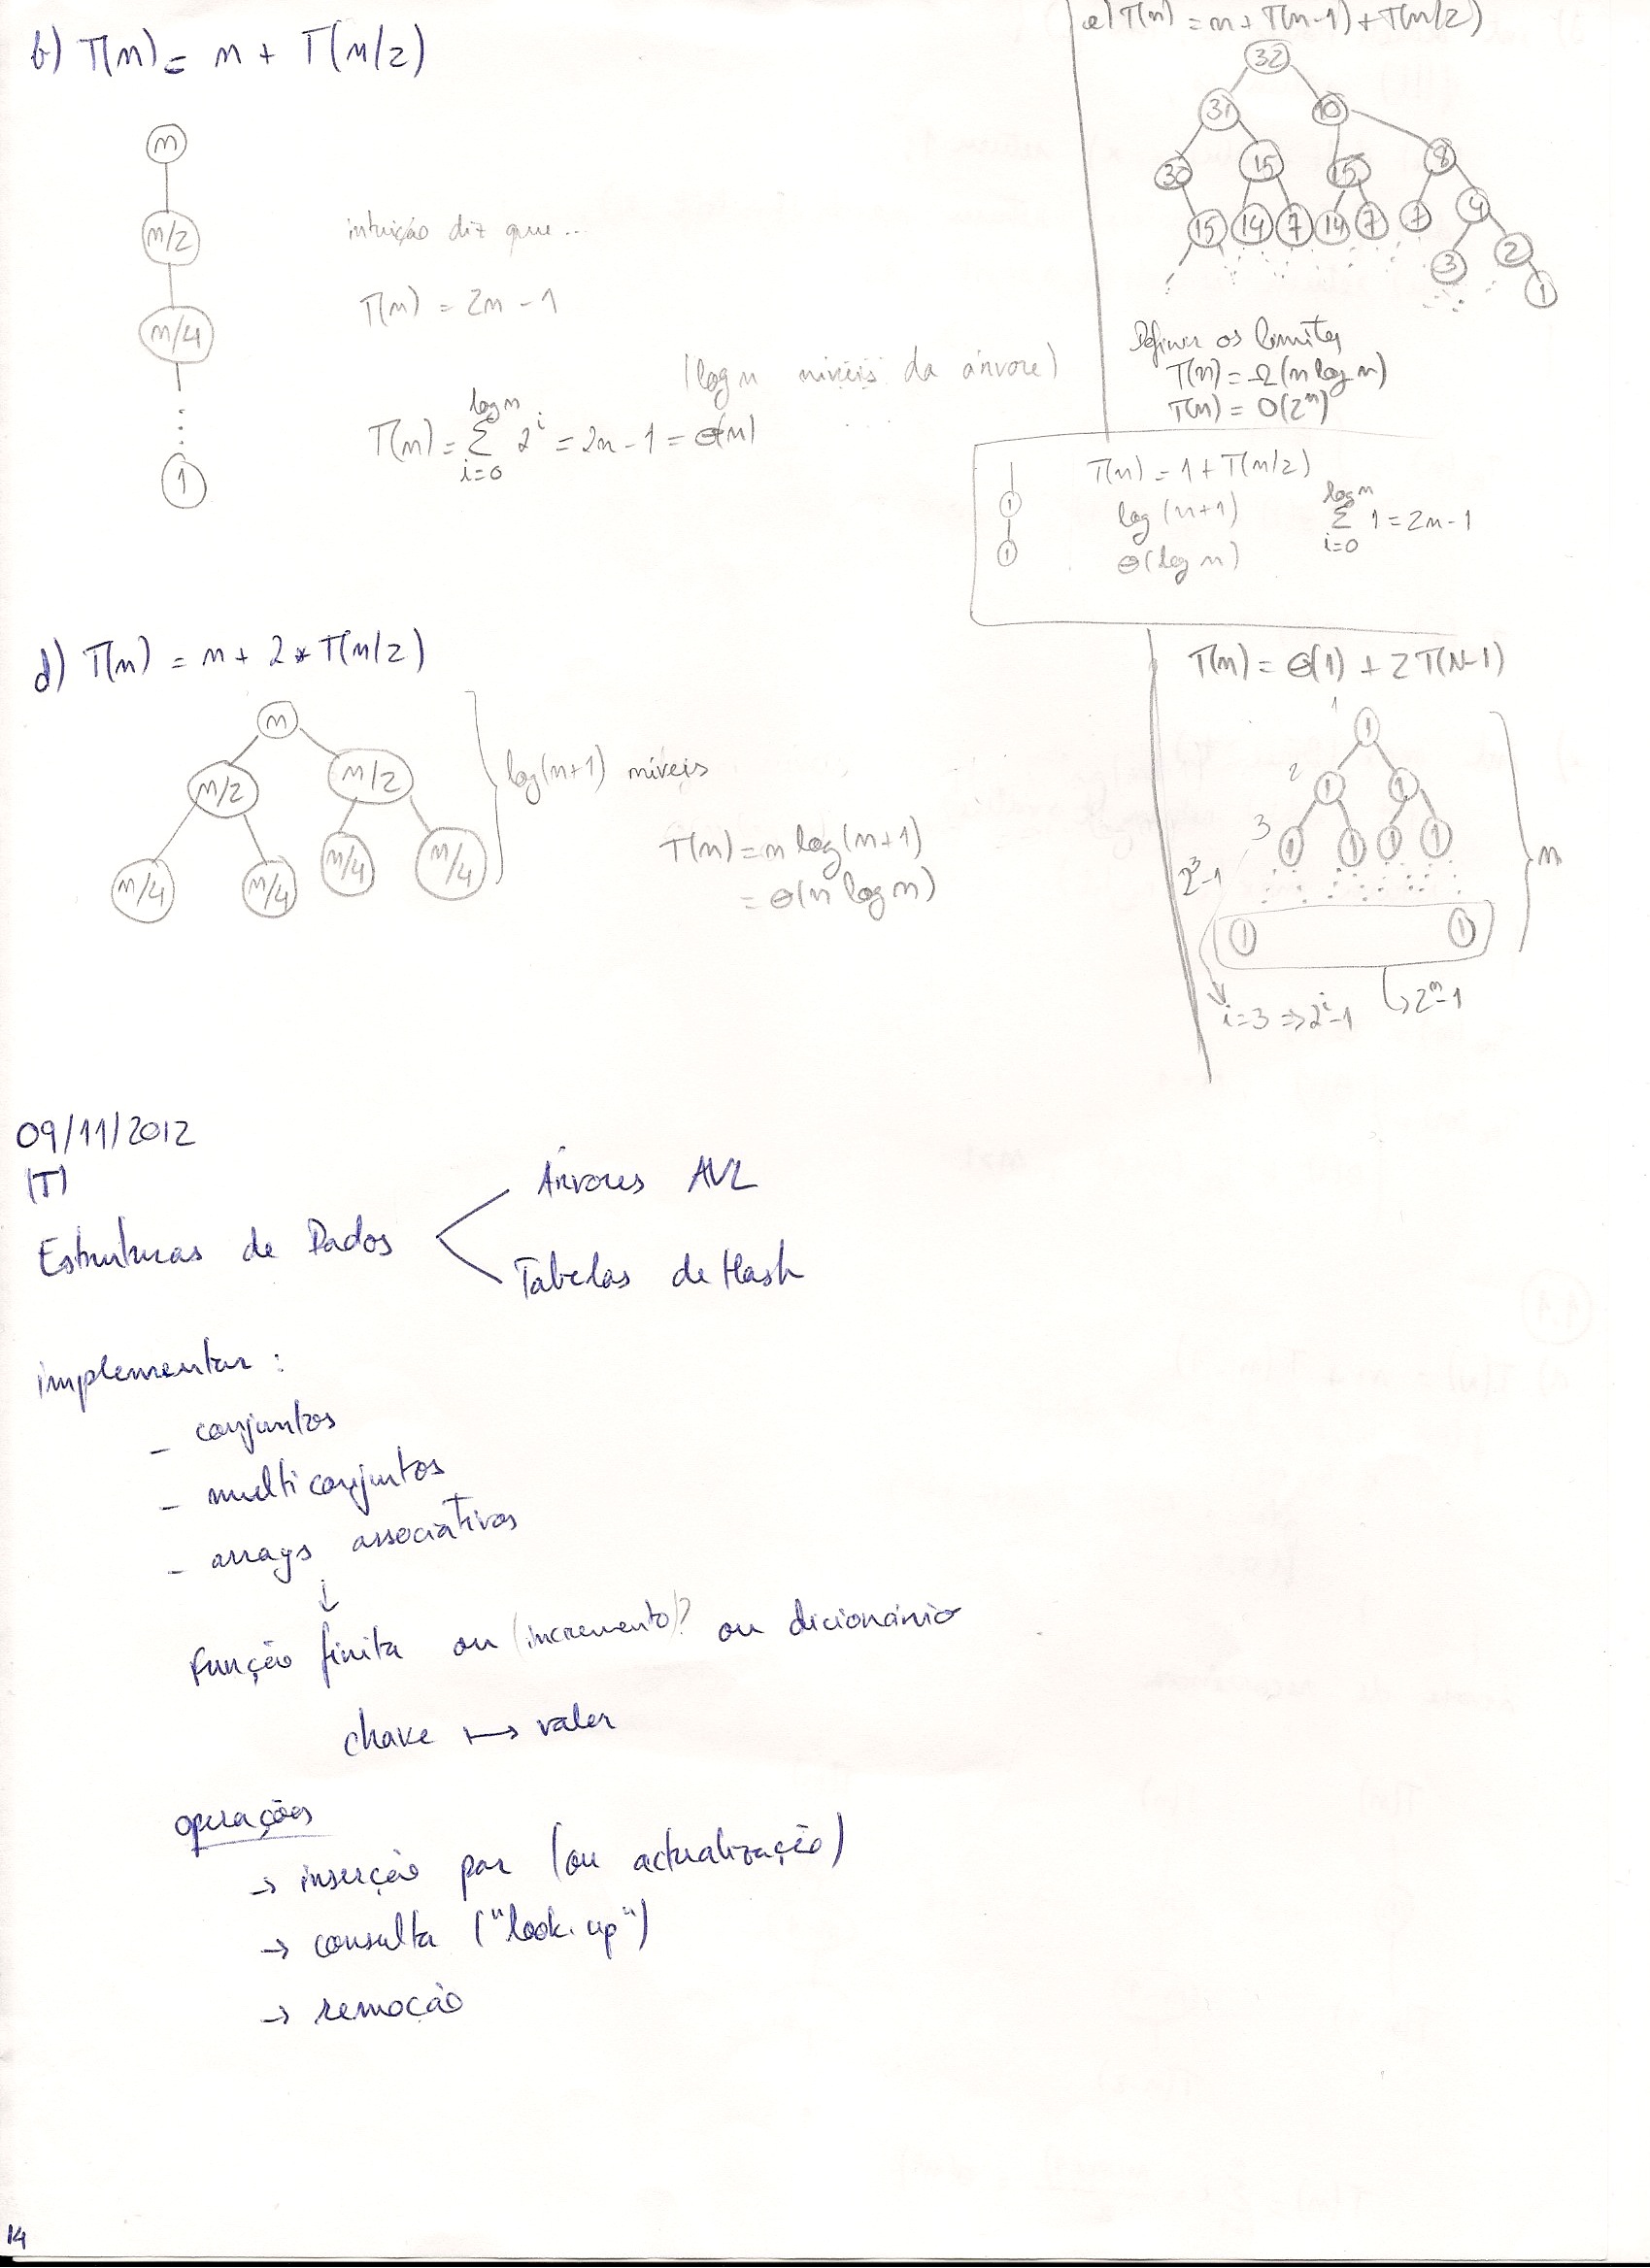 b) T(n) = n + T(n/2)
n
n/2
n/4
1
intuição diz que...
T(n) = 2n - 1
(log n níveis da árvore)
T(n) = log n Σ i=0 2^i = 2n - 1 = Θ(n)
e) T(n) = n + T(n-1) + T(n/2)
32
31 10
30 15 15 8
15 14 7 14 7 7 4
3 2
1
Definir os limites
T(n) = Ω(n log n)
T(n) = O(2^n)
1
1
T(n) = 1 + T(n/2)
log (n+1)
Θ(log n)
log n Σ i=0 1 = 2n - 1
d) T(n) = n + 2 * T(n/2)
n
n/2 n/2
n/4 n/4 n/4 n/4
log(n+1) níveis
T(n) = n log(n+1)
= Θ(n log n)
T(n) = Θ(1) + 2T(N-1)
1 1
2 1 1
3 1 1 1 1
2^3-1
1 1
n
i=3 => 2^i-1
↳ 2^n-1
09/11/2012
(T)
Estruturas de Dados
Árvores AVL
Tabelas de Hash
implementar :
- conjuntos
- multiconjuntos
- arrays associativos
↓
função finita ou (incremento)? ou dicionário
chave ↦ valor
operações
→ inserção par (ou actualização)
→ consulta ("look-up")
→ remoção
14